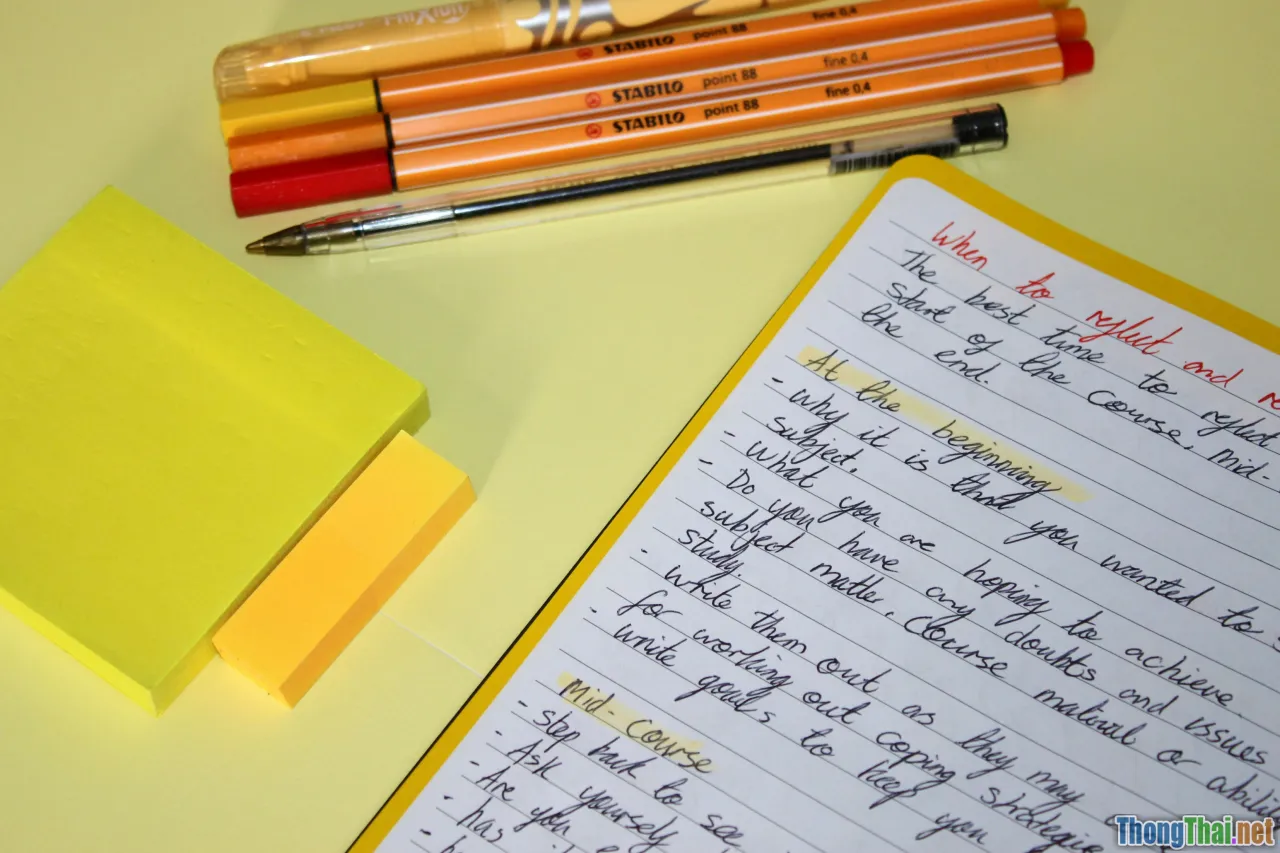 STABILO point 88 fine 0,4
STABILO point 88 fine 0,4
STABILO point 88 fine 0,4
When to reflect and
The best time to reflect
start of the course, mid-
the end.
At the beginning
- why it is that you wanted to
subject.
- what you are hoping to achieve.
- Do you have any doubts and issues
subject matter, course material or
study.
- write them out as they may
- for working out coping
write goals to keep you
Mid-Course
- step back to see
- Ask yourself
- Are you
- has
ThongThai.net